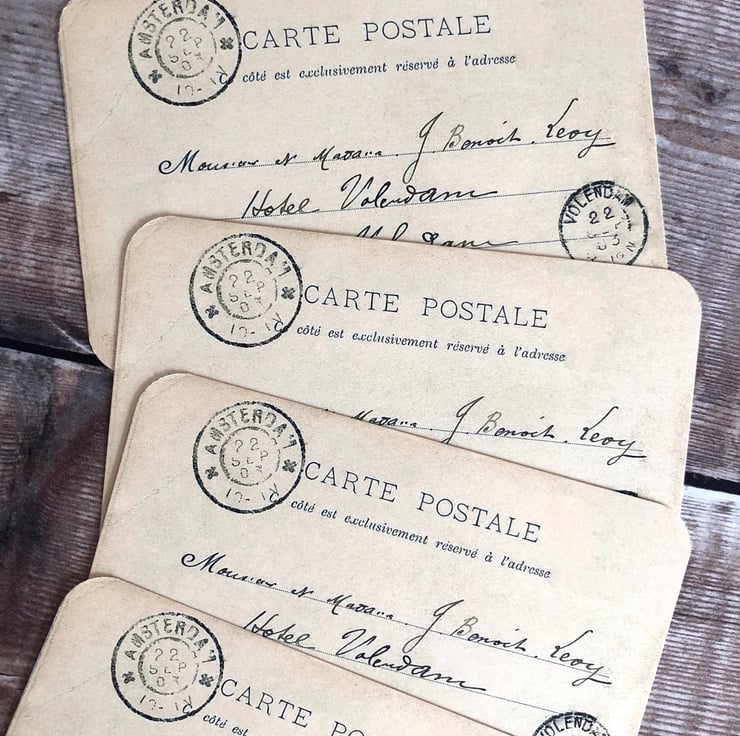 AMSTERDAM
22
SEP
03
CARTE POSTALE
côté est exclusivement réservé à l'adresse
J Benoit. Levy
Hotel Volendam
Volendam
VOLENDAM
22
SEP
03
AMSTERDAM
22
SEP
03
CARTE POSTALE
côté est exclusivement réservé à l'adresse
J Benoit. Levy
AMSTERDAM
22
SEP
03
CARTE POSTALE
côté est exclusivement réservé à l'adresse
J Benoit. Levy
Hotel Volendam
VOLENDAM
AMSTERDAM
22
SEP
03
CARTE PO
côté est